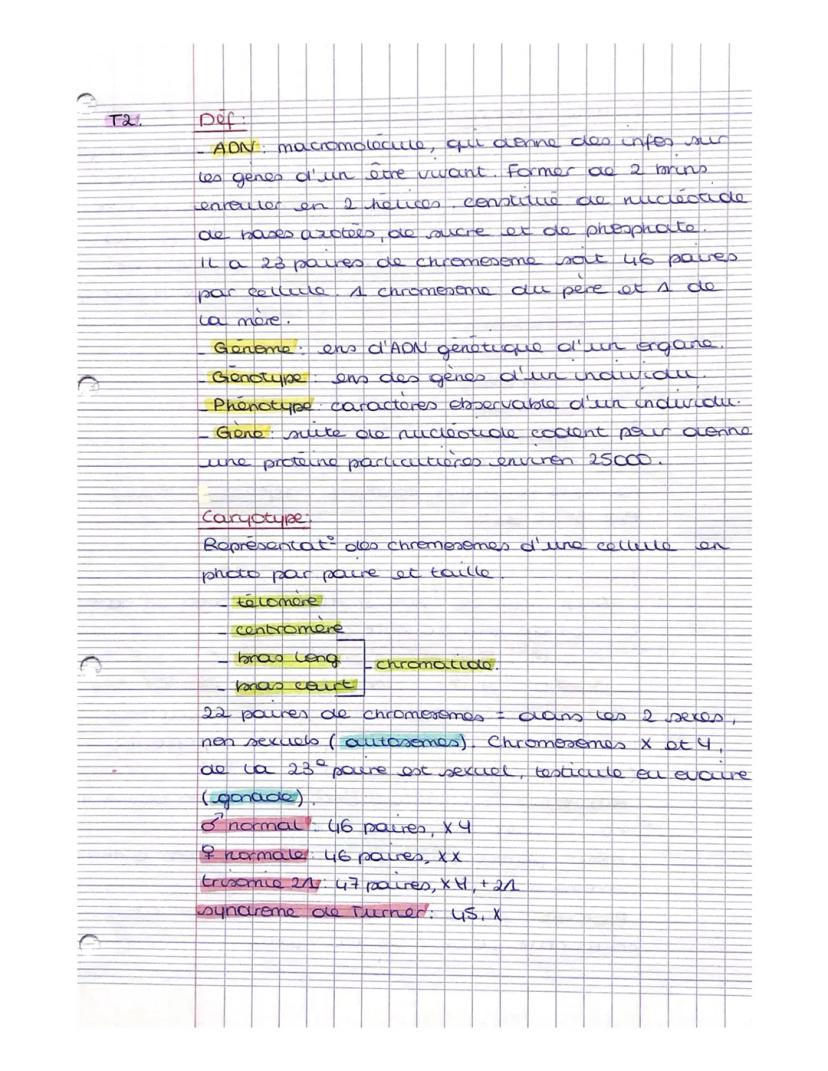 T2.
Déf :
- ADN : macromolécule, qui donne des infos sur
les gènes d'un être vivant. Former de 2 brins
enrouler en 2 hélices. constitué de nucléotide
de bases azotées, de sucre et de phosphate.
Il a 23 paires de chromosome soit 46 paires
par cellule. 1 chromosome du père et 1 de
la mère.
- Génome : ens d'ADN génétique d'un organe.
- Génotype : ens des gènes d'un individu.
- Phénotype : caractères observable d'un individu.
- Gène : suite de nucléotide codent pour donne
une protéine particulières environ 25000.
Caryotype :
Représentat° des chromosomes d'une cellule en
photo par paire et taille.
- télomère
- centromère
- bras long
- chromatide.
- bras court
22 paires de chromosomes = dans les 2 sexes,
non sexuels (autosomes). Chromosomes X et Y,
de la 23e paire est sexuel, testicule ou ovaire
(gonade).
♂ normal : 46 paires, XY
♀ normale : 46 paires, XX
trisomie 21 : 47 paires, XY, +21
syndrome de Turner : 45, X